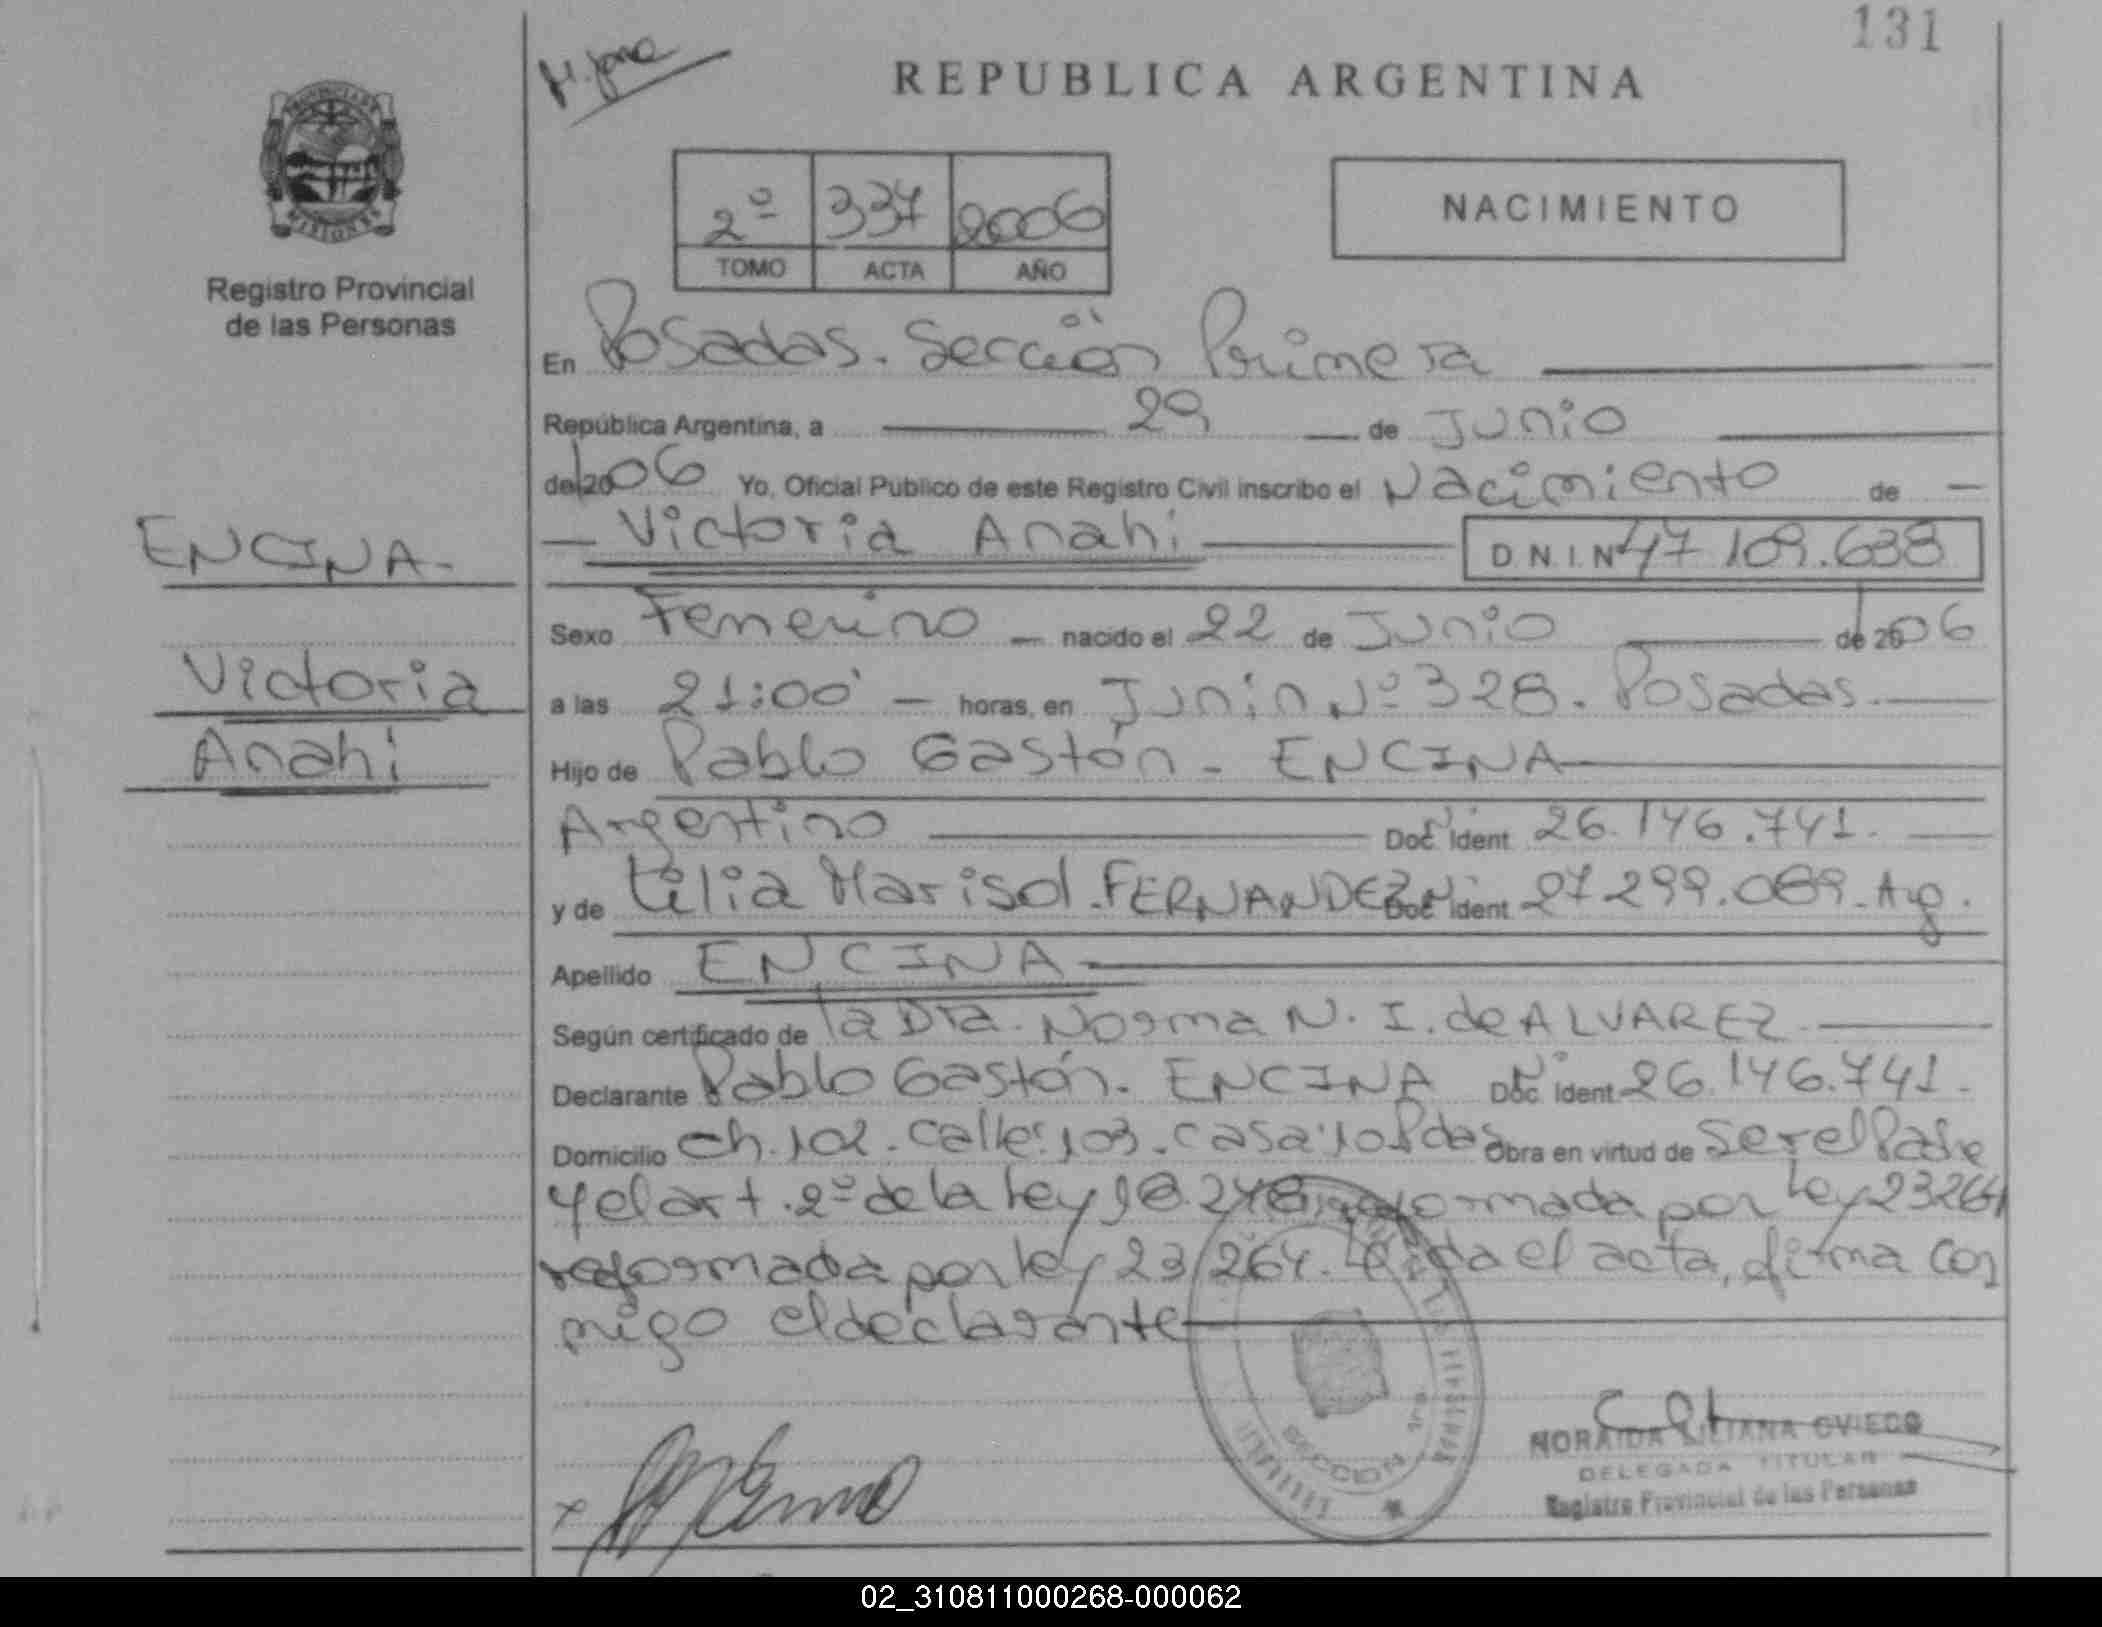 131
REPUBLICA ARGENTINA
PROVINCIA DE
MISIONES
Registro Provincial
de las Personas
2º 337 2006
TOMO ACTA AÑO
NACIMIENTO
En Posadas. Sección Primera
República Argentina, a 29 de Junio
de 2006 Yo, Oficial Publico de este Registro Civil inscribo el Nacimiento de
Victoria Anahi D.N.I. Nº 47 109.638
ENCINA.
Victoria
Anahi
Sexo Femenino nacido el 22 de Junio de 2006
a las 21:00 horas, en Junín Nº 328. Posadas.
Hijo de Pablo Gastón - ENCINA
Argentino Doc. Ident 26.146.741.
y de Lilia Marisol. FERNANDEZ Doc. Ident 27 299.089. Arg.
Apellido ENCINA
Según certificado de la Dra. Norma N. I. de ALVAREZ
Declarante Pablo Gastón. ENCINA Doc. Ident 26.146.741.
Domicilio Ch. 102. calle: 103. casa: 10 Pdas Obra en virtud de Ser el Padre
y el art. 2º de la Ley 18.248, reformada por Ley 23264
reformada por ley 23.264. Leída el acta, firma con
migo el declarante
SECCION 1ra
NORAIDA LILIANA OVIEDO
DELEGADA TITULAR
Registro Provincial de las Personas
02_310811000268-000062